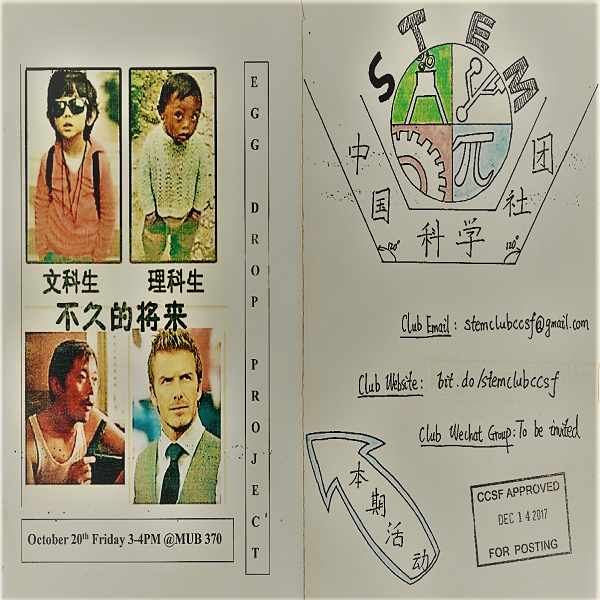 文科生 理科生
不久的将来
EGG DROP PROJECT
October 20th Friday 3-4PM @MUB 370
STEM
中国科学社团
120° 120°
π
Club Email: stemclubccsf@gmail.com
Club Website: bit.do/stemclubccsf
Club Wechat Group: To be invited
本期活动
CCSF APPROVED
DEC 14 2017
FOR POSTING